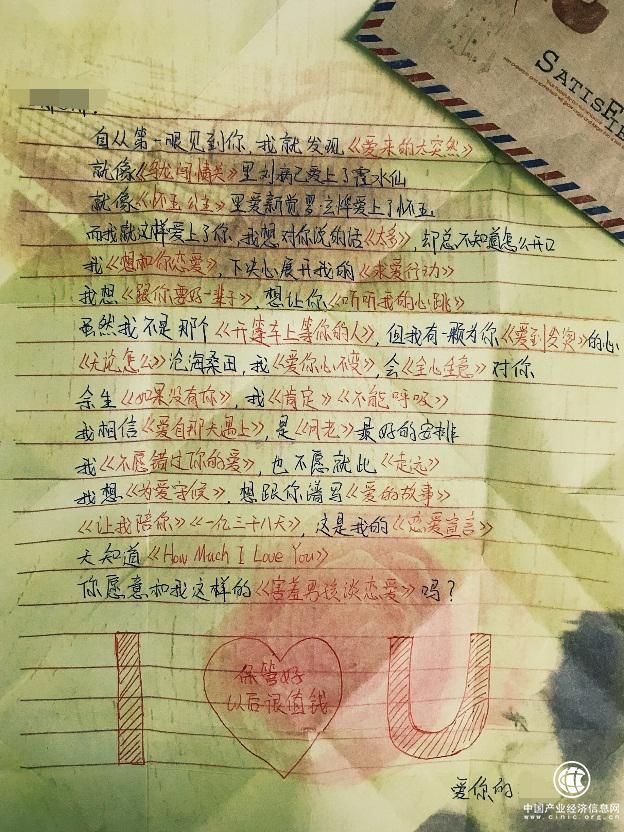 SATISF
自从第一眼见到你，我就发现《爱来的太突然》
就像《乌龙闯情关》里刘病已爱上了霍水仙
就像《怀玉公主》里爱新觉罗·玄烨爱上了怀玉
而我就这样爱上了你，我想对你说的话《太多》，却总不知道怎么开口
我《想和你恋爱》，下决心展开我的《求爱行动》
我想《跟你要好一辈子》想让你《听听我的心跳》
虽然我不是那个《开篷车上等你的人》，但我有一颗为你《爱到发烫》的心
《无论怎么》沧海桑田，我《爱你心不变》，会《全心全意》对你
余生《如果没有你》，我《肯定》《不能呼吸》
我相信《爱自那天遇上》，是《月老》最好的安排
我《不愿错过你的爱》，也不愿就此《走远》
我想《为爱守候》，想跟你谱写《爱的故事》
《让我陪你》《一亿三十八天》，这是我的《恋爱宣言》
天知道《How Much I Love You》
你愿意和我这样的《害羞男孩谈恋爱》吗？
I U
保管好
以后很值钱
爱你的
中国产业经济信息网
www.cinic.org.cn